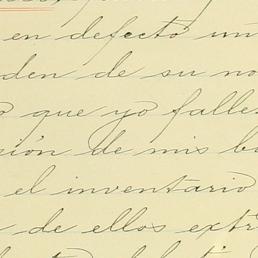 en defecto un
den de su no
que yo falle
sión de mis b
el inventario
de ellos extr